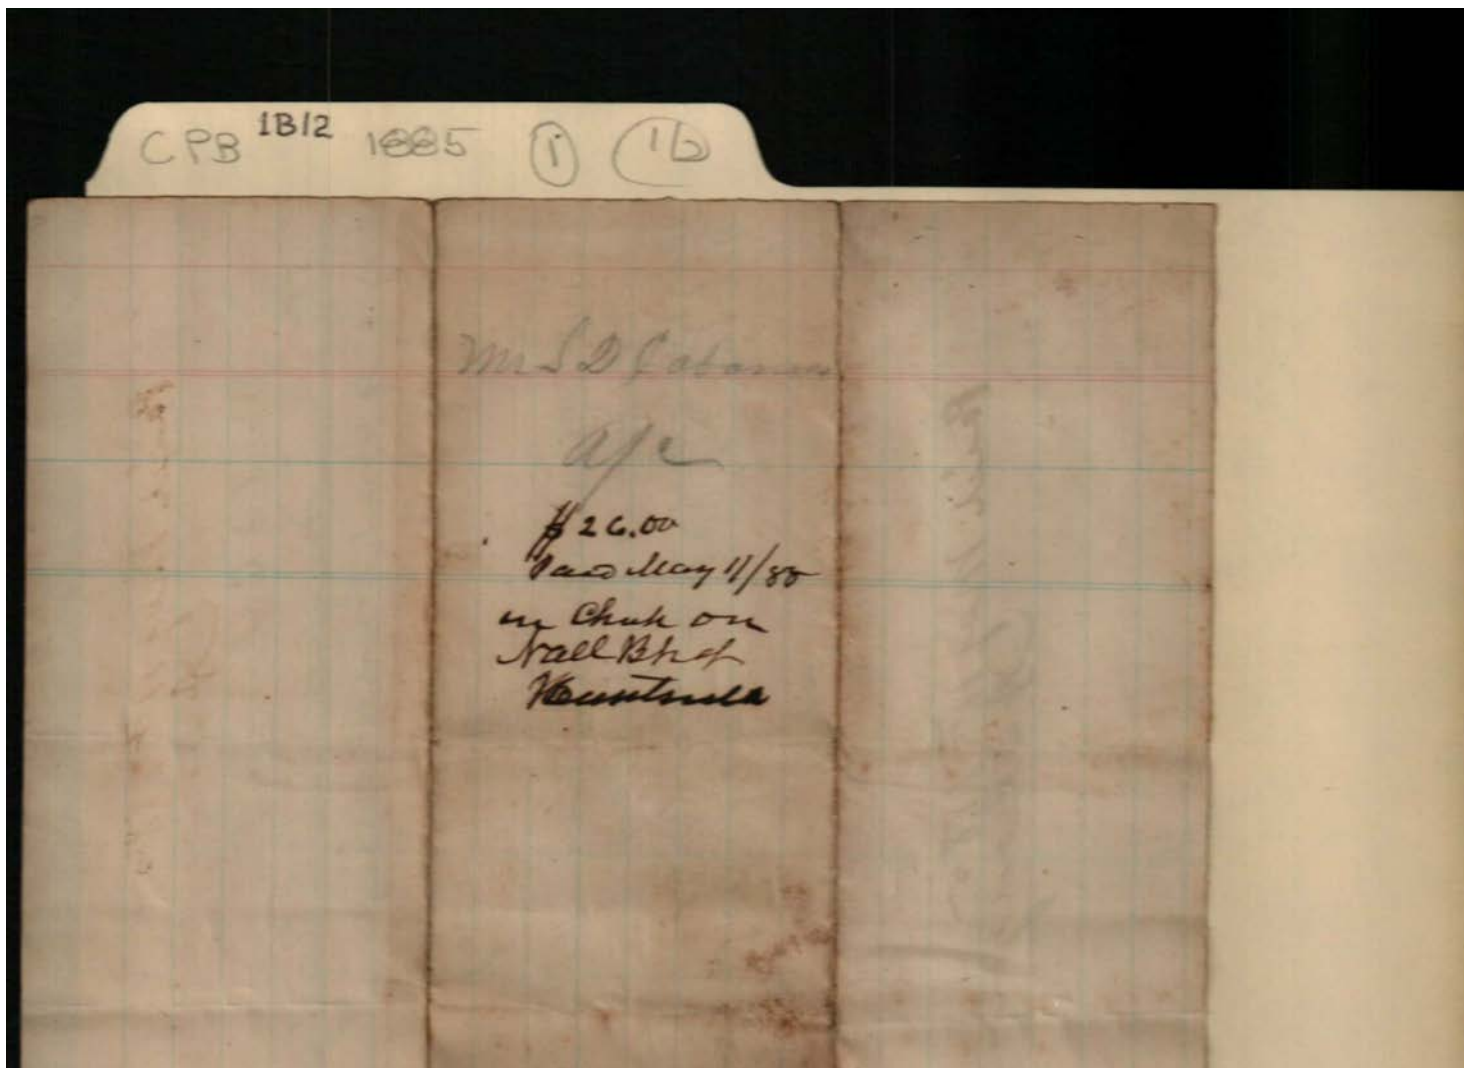 CPB 1B12 1885 1 1b
Mr S D Cabaness
a/c
$26.00
Paid May 11/85
in Check on
Natl Bk of
Huntsville